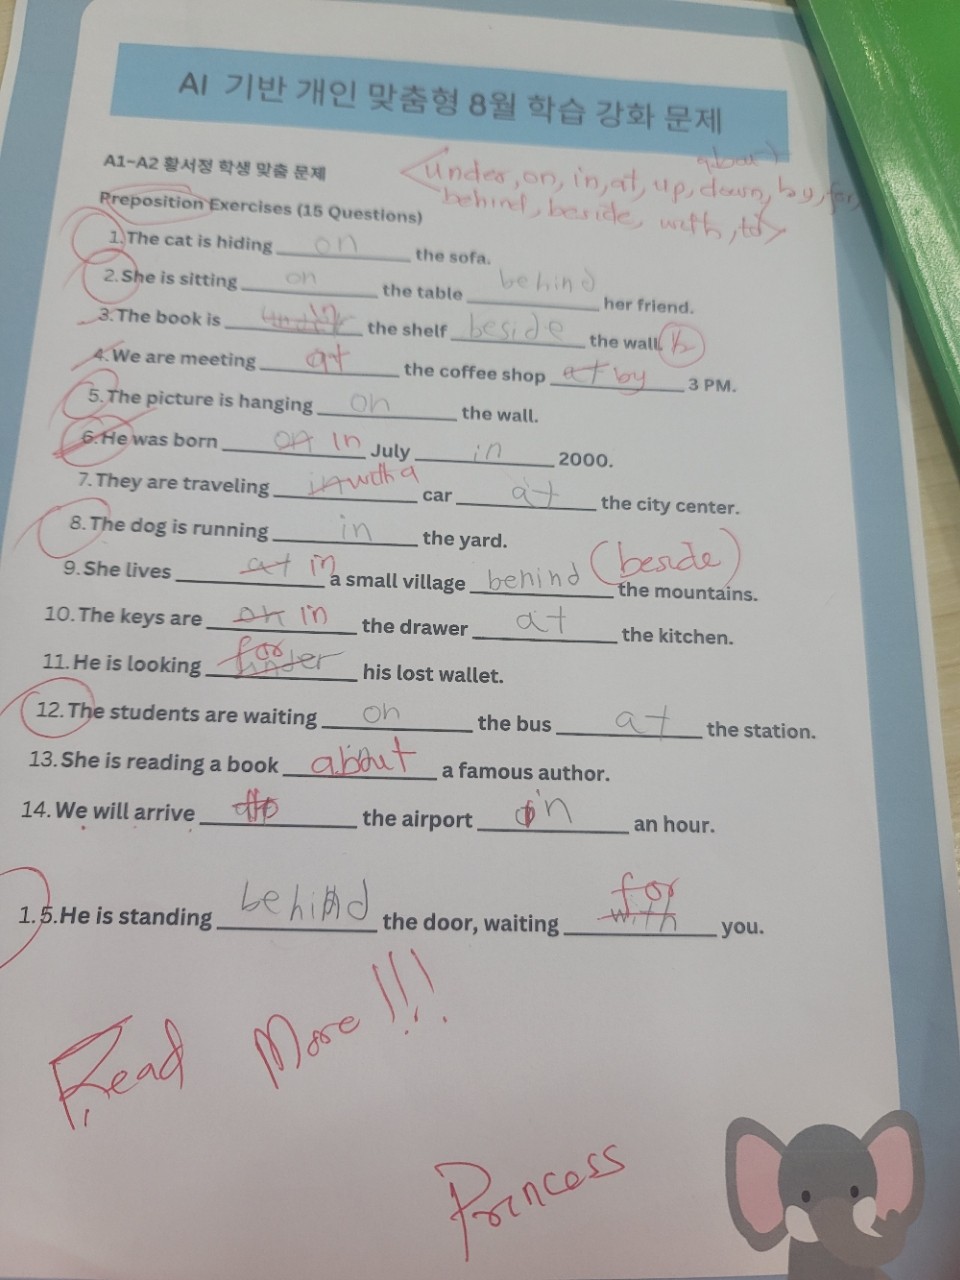 AI 기반 개인 맞춤형 8월 학습 강화 문제
A1-A2 황서정 학생 맞춤 문제
about
<under, on, in, at, up, down, by, for,
behind, beside, with, to>
Preposition Exercises (15 Questions)
1. The cat is hiding on the sofa.
2. She is sitting on the table behind her friend.
3. The book is under the shelf beside the wall.
4. We are meeting at the coffee shop at by 3 PM.
5. The picture is hanging on the wall.
6. He was born on in July in 2000.
7. They are traveling in with a car at the city center.
8. The dog is running in the yard.
9. She lives at in a small village behind (beside) the mountains.
10. The keys are on in the drawer at the kitchen.
11. He is looking under for his lost wallet.
12. The students are waiting on the bus at the station.
13. She is reading a book about a famous author.
14. We will arrive the airport in an hour.
1.5. He is standing behind the door, waiting with for you.
Read More!!!
Princess